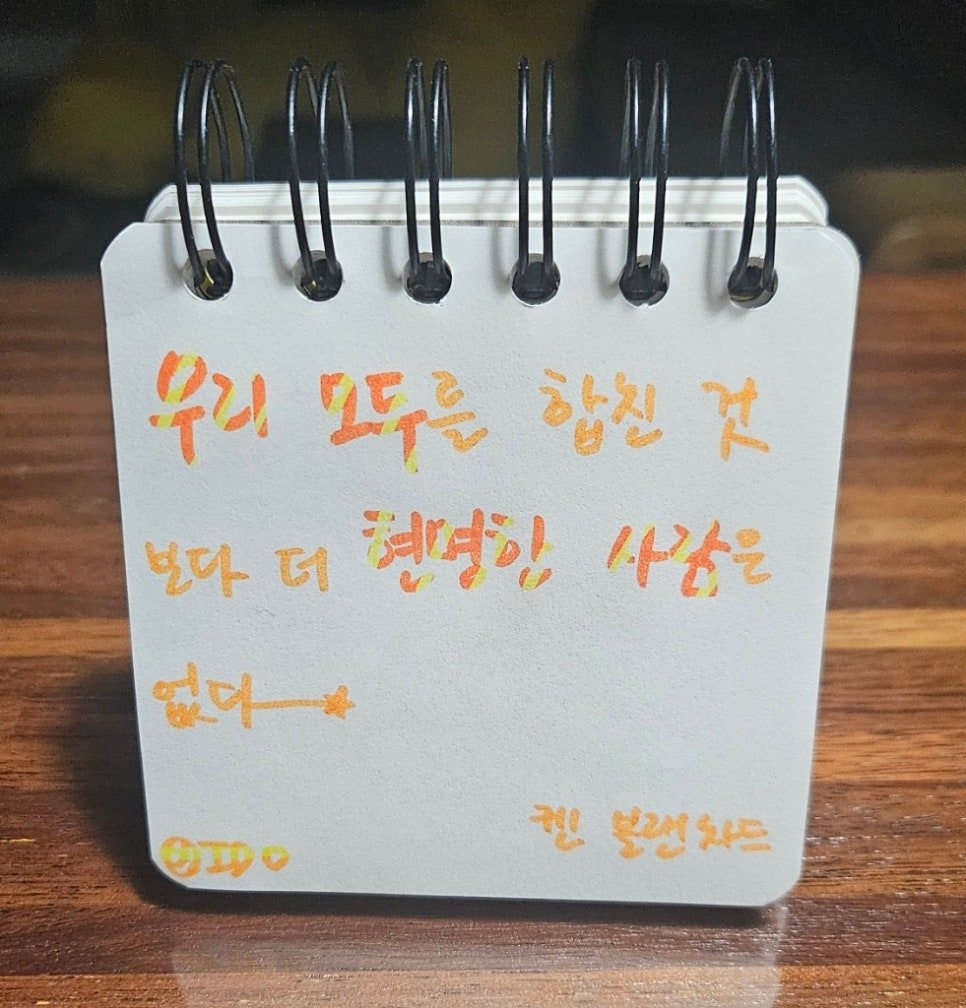 우리 모두를 합친 것
보다 더 현명한 사람은
없다
켄 블랜차드